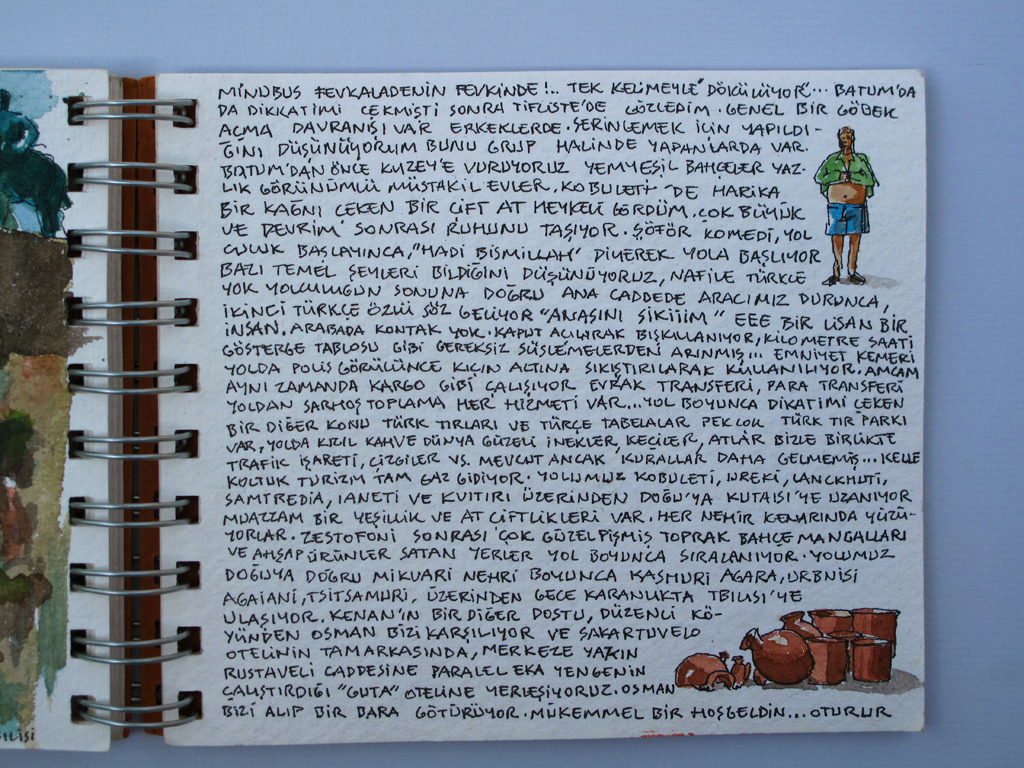 MİNÜBÜS FEVKALADENİN FEVKİNDE!.. TEK KELİMEYLE "DÖKÜLÜYOR"... BATUM'DA
DA DİKKATİMİ ÇEKMİŞTİ SONRA TİFLİSTE'DE GÖZLEDİM. GENEL BİR GÖBEK
AÇMA DAVRANIŞI VAR ERKEKLERDE. SERİNLEMEK İÇİN YAPILDI-
ĞINI DÜŞÜNÜYORUM BUNU GRUP HALİNDE YAPANLARDA VAR.
BATUM'DAN ÖNCE KUZEY'E VURUYORUZ YEMYEŞİL BAHÇELER YAZ-
LIK GÖRÜNÜMLÜ MÜSTAKİL EVLER. KOBULETİ 'DE HARİKA
BİR KAĞNI ÇEKEN BİR ÇİFT AT HEYKELİ GÖRDÜM. ÇOK BÜYÜK
VE DEVRİM SONRASI RUHUNU TAŞIYOR. ŞÖFÖR KOMEDİ, YOL
CULUK BAŞLAYINCA, "HADİ BİSMİLLAH" DİYEREK YOLA BAŞLIYOR
BAZI TEMEL ŞEYLERİ BİLDİĞİNİ DÜŞÜNÜYORUZ, NAFİLE TÜRKÇE
YOK YOLCULUĞUN SONUNA DOĞRU ANA CADDEDE ARACIMIZ DURUNCA,
İKİNCİ TÜRKÇE ÖZLÜ SÖZ GELİYOR "ANASINI SİKİİİM" EEE BİR LİSAN BİR
İNSAN. ARABADA KONTAK YOK. KAPUT AÇILARAK BIŞKILLANIYOR, KİLOMETRE SAATİ
GÖSTERGE TABLOSU GİBİ GEREKSİZ SÜSLEMELERDEN ARINMIŞ... EMNİYET KEMERİ
YOLDA POLİS GÖRÜLÜNCE KIÇIN ALTINA SIKIŞTIRILARAK KULLANILIYOR. AMCAM
AYNI ZAMANDA KARGO GİBİ ÇALIŞIYOR EVRAK TRANSFERİ, PARA TRANSFERİ
YOLDAN SARHOŞ TOPLAMA HER HİZMETİ VAR... YOL BOYUNCA DİKATİMİ ÇEKEN
BİR DİĞER KONU TÜRK TIRLARI VE TÜRÇE TABELALAR PEK ÇOK TÜRK TIR PARKI
VAR, YOLDA KIZIL KAHVE DÜNYA GÜZELİ İNEKLER, KEÇİLER, ATLAR BİZLE BİRLİKTE
TRAFİK İŞARETİ, ÇİZGİLER VS. MEVCUT ANCAK, KURALLAR DAHA GELMEMİŞ... KELLE
KOLTUK TURİZM TAM GAZ GİDİYOR. YOLUMUZ KOBULETİ, UREKİ, LANCKHUTİ,
SAMTREDİA, IANETİ VE KVITIRI ÜZERİNDEN DOĞU'YA KUTAISI'YE UZANIYOR
MUAZZAM BİR YEŞİLLİK VE AT ÇİFTLİKLERİ VAR. HER NEHİR KENARINDA YÜZÜ-
YORLAR. ZESTOFONİ SONRASI ÇOK GÜZEL PİŞMİŞ TOPRAK BAHÇE MANGALLARI
VE AHŞAP ÜRÜNLER SATAN YERLER YOL BOYUNCA SIRALANIYOR. YOLUMUZ
DOĞUYA DOĞRU MİKVARİ NEHRİ BOYUNCA KASHURİ AGARA, URBNISI
AGAIANI, TSITSAMURI, ÜZERİNDEN GECE KARANLIKTA TBILISI'YE
ULAŞIYOR. KENAN'IN BİR DİĞER DOSTU, DÜZENLİ KÖ-
YÜNDEN OSMAN BİZİ KARŞILIYOR VE SAKARTUVELO
OTELİNİN TAM ARKASINDA, MERKEZE YAKIN
RUSTAVELİ CADDESİNE PARALEL EKA YENGENİN
ÇALIŞTIRDIĞI "GUTA" OTELİNE YERLEŞİYORUZ. OSMAN
BİZİ ALIP BİR BARA GÖTÜRÜYOR. MÜKEMMEL BİR HOŞGELDİN... OTURUR